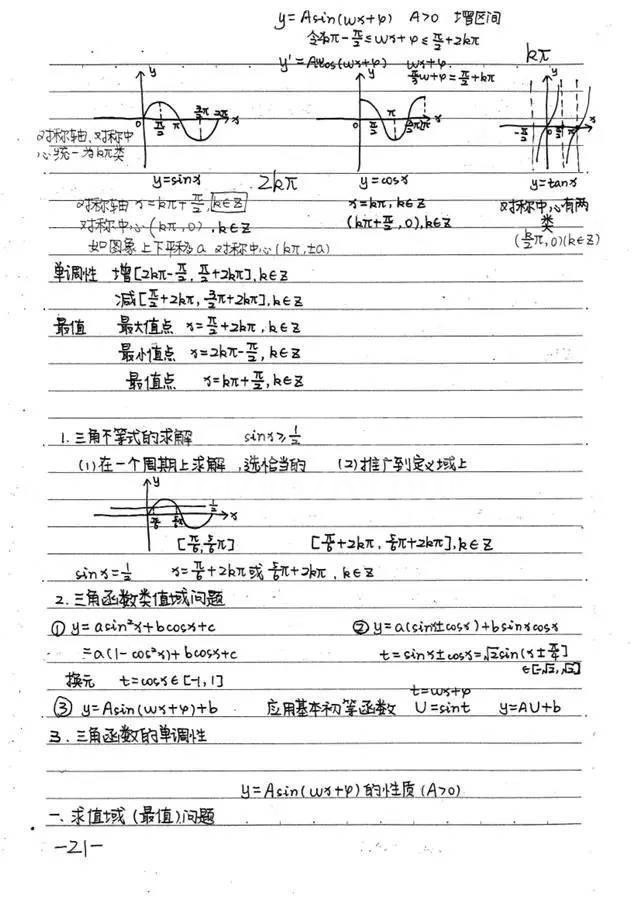 y=Asin(wx+φ) A>0 增区间
令2kπ-π/2≤wx+φ≤π/2+2kπ
y'=Awcos(wx+φ) wx+φ=π/2+kπ
kπ
对称轴、对称中
心统一为kπ类
y=sinx 2kπ y=cosx y=tanx
对称轴 x=kπ+π/2,k∈Z x=kπ,k∈Z 对称中心有两
类
对称中心(kπ,0),k∈Z (kπ+π/2,0),k∈Z (k/2π,0)(k∈Z)
如图象上下平移a 对称中心(kπ,±a)
单调性 增[2kπ-π/2,π/2+2kπ],k∈Z
减[π/2+2kπ,3/2π+2kπ],k∈Z
最值 最大值点 x=π/2+2kπ,k∈Z
最小值点 x=2kπ-π/2,k∈Z
最值点 x=kπ+π/2,k∈Z
1.三角不等式的求解 sinx≥1/2
(1)在一个周期上求解,选恰当的 (2)推广到定义域上
y 1/2 x
0 π/6 5/6π
[π/6,5/6π] [π/6+2kπ,5/6π+2kπ],k∈Z
sinx=1/2 x=π/6+2kπ或5/6π+2kπ,k∈Z
2.三角函数类值域问题
①y=asin²x+bcosx+c ②y=a(sinx±cosx)+bsinxcosx
=a(1-cos²x)+bcosx+c t=sinx±cosx=√2sin(x±π/4)
∈[-√2,√2]
换元 t=cosx∈[-1,1]
t=wx+φ
③y=Asin(wx+φ)+b 应用基本初等函数 U=sint y=AU+b
3.三角函数的单调性
y=Asin(wx+φ)的性质(A>0)
一、求值域(最值)问题
-21-